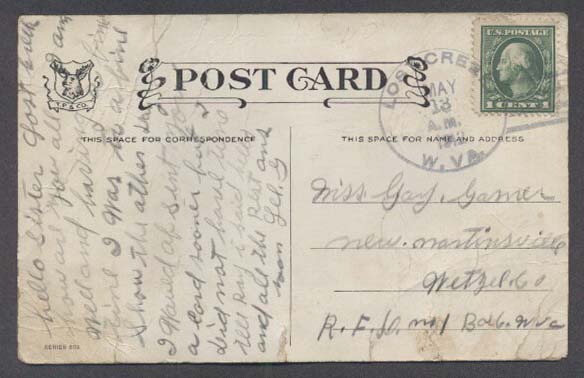 POST CARD
T.P.& CO.
THIS SPACE FOR CORRESPONDENCE
THIS SPACE FOR NAME AND ADDRESS
U.S. POSTAGE
1 CENT 1
LOST CREEK
MAY
13
A.M.
W. VA.
hello Sister Gost
how are you all I am
Well and having fine
time I was in a fine
Show the other
I Would of sent you
a Card sooner but I
did not have time
tell Ray i said
and all the Rest ans
soon
Miss Gay. Garner
new. martinsville
Wetzel. Co
R. F. D. no 1 Box 6. W va
SERIES 802